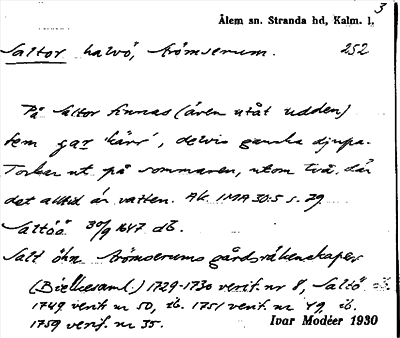 3
Ålem sn. Stranda hd, Kalm. l.
Saltor halvö, Strömserum. 252
På Saltor finnas (även utåt udden)
fem gar 'kärr', delvis ganska djupa.
Torkar ut på sommaren, utom två, där
det alltid är vatten. Ak. IMA 30:5 s. 29
Saltöö 30/9 1647 db.
Salt öhn Strömserums gårdsräkenskaper
(Bielkesaml.) 1729-1730 verif. nr 8, Saltö ib.
1749 verif. nr 50, ib. 1751 verif. nr 49, ib.
1759 verif. nr 35.
Ivar Modéer 1930